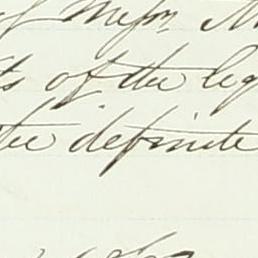 of Messrs. M
ts of the leg
the definite